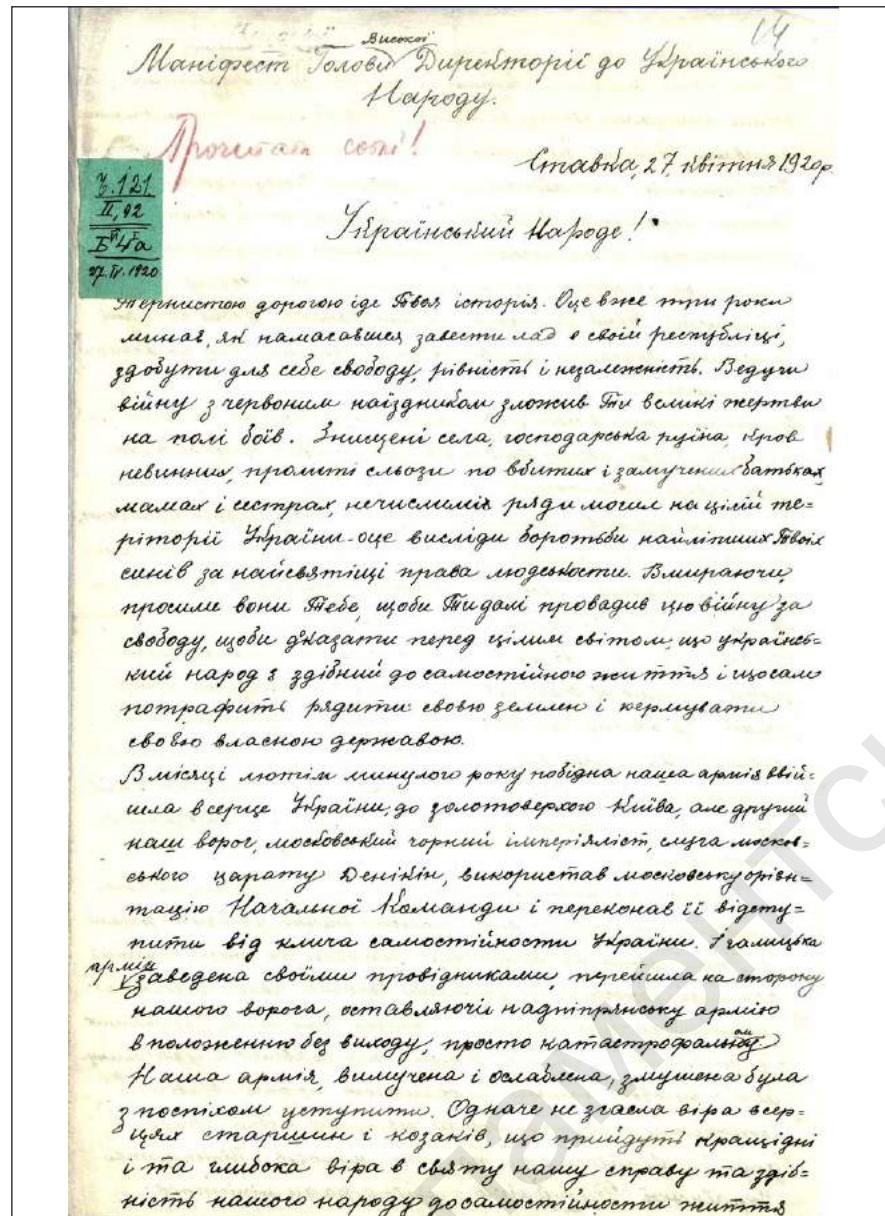 14
Високої
Маніфест Голови Директорії до Українського
Народу.
Прочитати сотні!
Ставка, 27 квітня 1920р.
Ч.121
II, 92
27.IV.1920
Український Народе!
Тернистою дорогою іде Твоя історія. Оце вже три роки
минає, як намагаєшся завести лад в своїй республіці,
здобути для себе свободу, рівність і незалежність. Ведучи
війну з червоним наїздником зложив Ти великі жертви
на полі боїв. Знищені села, господарська руїна, кров
невинних, пролиті сльози по вбитих і замучених батьках,
мамах і сестрах, нечислимі ряди могил на цілій те=
риторії України - оце висліди боротьби найліпших Твоїх
синів за найсвятіщі права людськости. Вмираючи,
просили вони Тебе, щоби Ти далі провадив цю війну за
свободу, щоби доказати перед цілим світом, що українсь=
кий народ є здібний до самостійного життя і що сам
потрафить рядити своєю землею і кермувати
своєю власною державою.
В місяці лютім минулого року побідна наша армія ввій=
шла в серце України, до золотоверхого Київа, але другий
наш ворог, московський чорний імперіяліст, слуга москов=
ського царату Денікін, використав московську орієн=
тацію Начальної Команди і переконав її відсту=
пити від клича самостійности України. І галицька
армія
заведена своїми провідниками, перейшла на сторону
нашого ворога, оставляючи надніпрянську армію
в положенню без виходу, просто катастрофальнім
Наша армія, вимучена і ослаблена, змушена була
з поспіхом уступити. Одначе не згасла віра в сер=
цях старшин і козаків, що прийдуть кращі дні
і та глибока віра в святу нашу справу та здіб=
ність нашого народу до самостійности життя